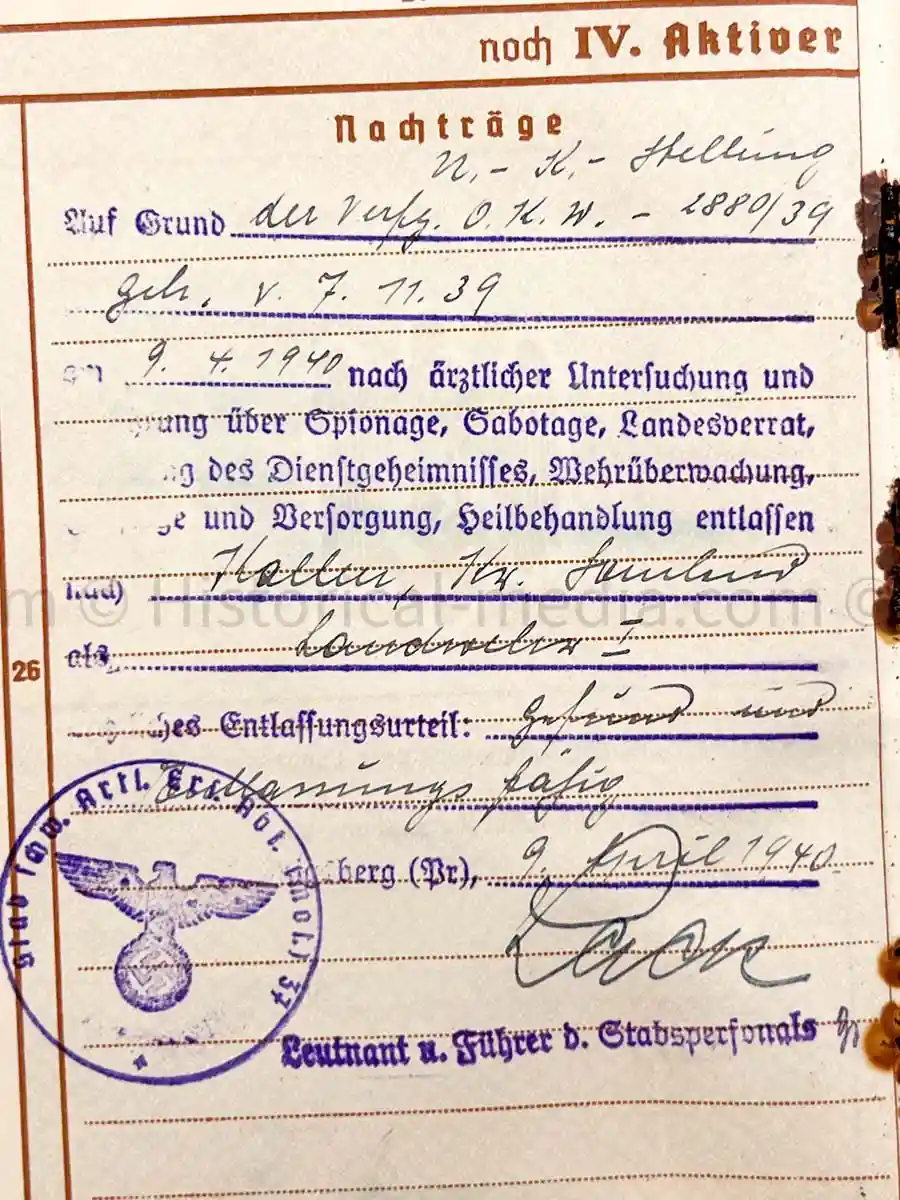 noch IV. Aktiver
Nachträge
N.- K.- Stellung
Auf Grund der Verfg. O. K. W. - 2880/39
geh. v. 7. 11. 39
9. 4. 1940 nach ärztlicher Untersuchung und
über Spionage, Sabotage, Landesverrat,
des Dienstgeheimnisses, Wehrüberwachung,
und Versorgung, Heilbehandlung entlassen
nach Kr. Samland
als Landwehr I
Entlassungsurteil: Gesund und
Entlassungsfähig
berg (Pr), 9. April 1940
Leutnant u. Führer d. Stabspersonals
Stab schw. Artl. Ers. Abt. (mot.) 37
26
© Historical-media.com ©